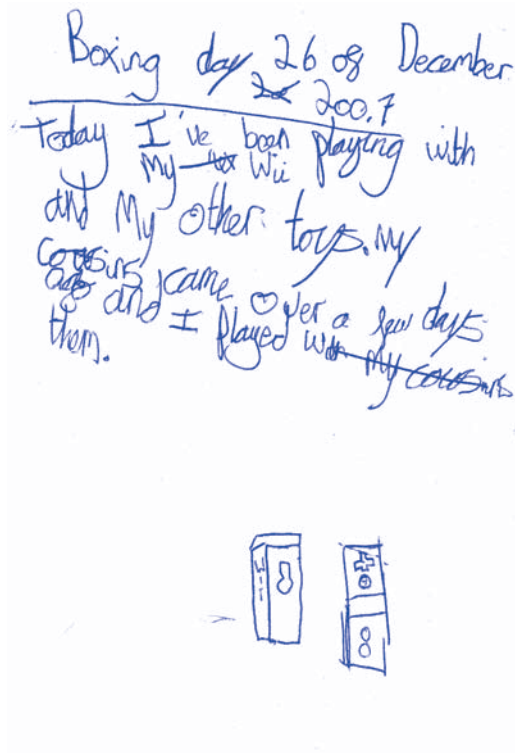 Boxing day 26 of December
2007
Today I've been playing with
My Wii
and My other toys. My
cousins came over a few days
ago and I played with my cousins
them.
Wii